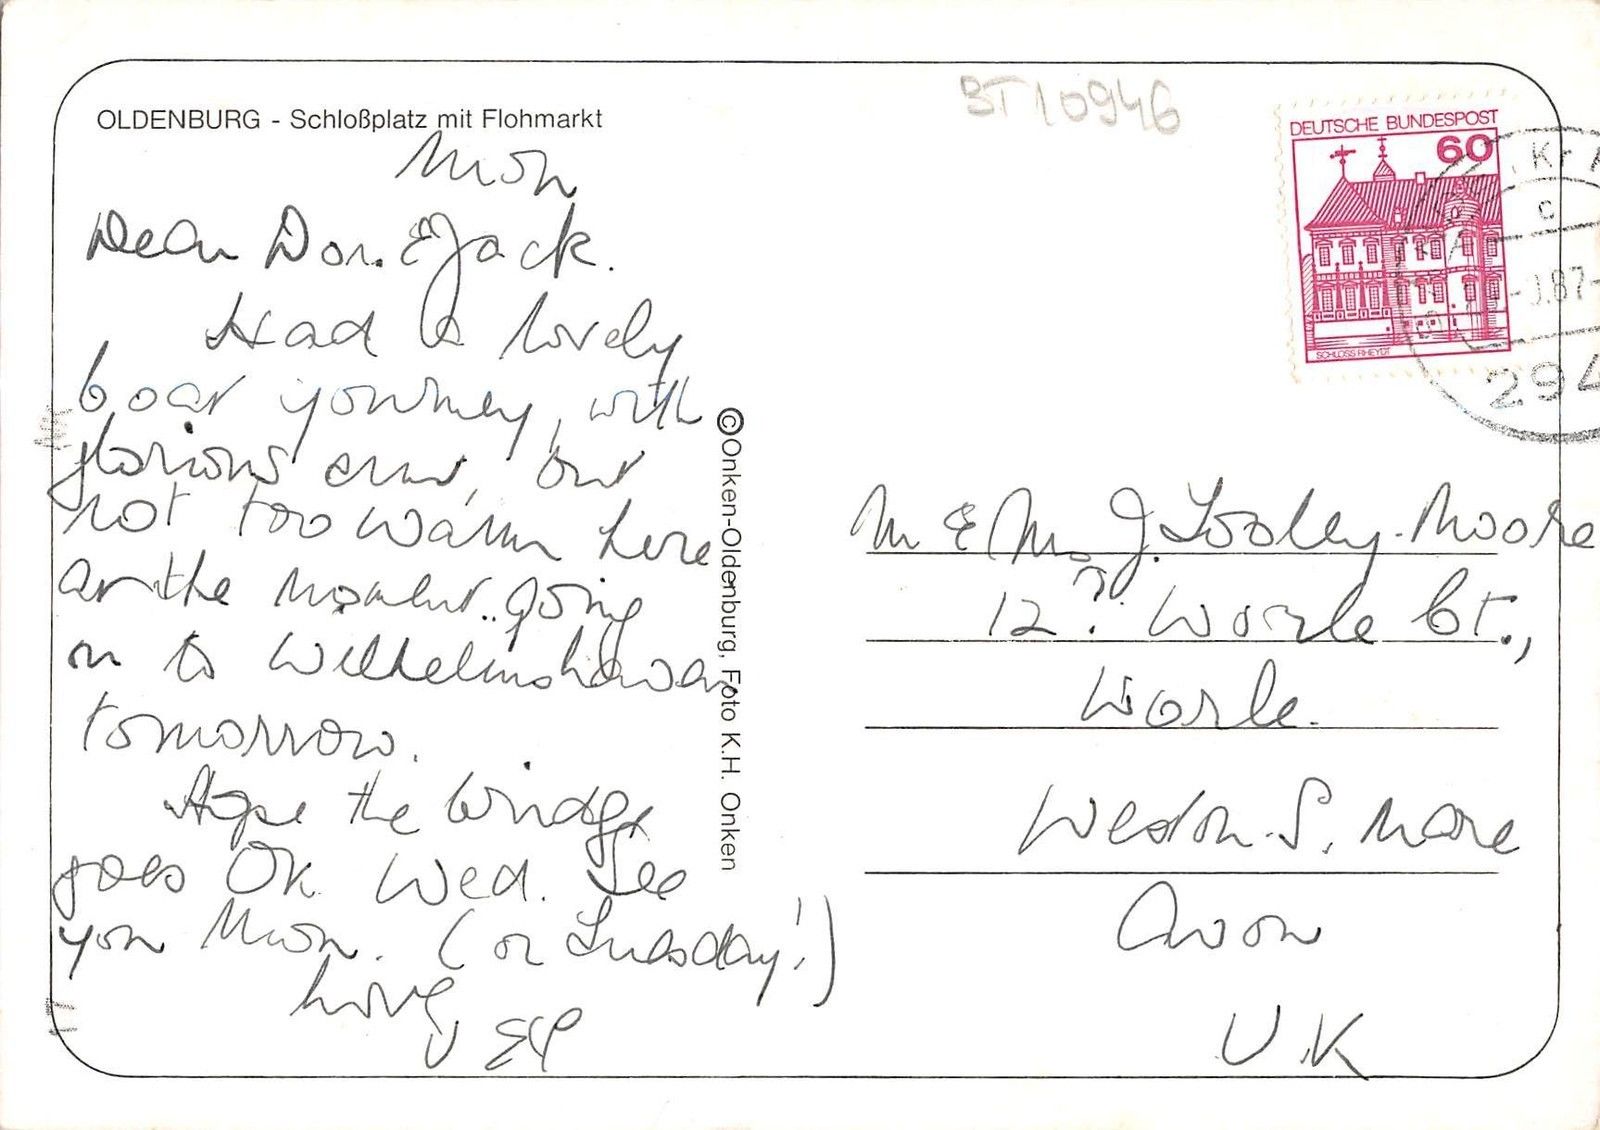 OLDENBURG - Schloßplatz mit Flohmarkt
BT10946
Mon
Dear Dor. & Jack.
Had a lovely
boat journey, with
glorious but
not too warm here
at the moment.. going
on to Wilhelmshaven
tomorrow.
Hope the Bridge
goes OK Wed. See
you Mon. (or Tuesday!)
Love,
©Onken-Oldenburg, Foto K.H. Onken
DEUTSCHE BUNDESPOST
60
SCHLOSS RHEYDT
c
.87-
294
Mr & Mrs J. Looley-Moore
12? Worle Ct.,
Worle.
Weston-S. Mare
Avon
UK